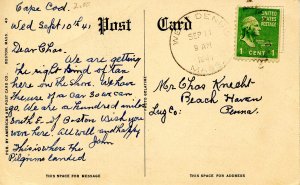 Cape Cod.
Wed Sept 10th 41
Post Card
Dear Chas.
We are getting
the right kind of tan
here on the shore. We have
the use of a car so we can
go. We are a hundred miles
South E. of Boston Wish you
were here. All well and happy
This is where the John
Pilgrims landed
WEST DENNIS
SEP 11
9 AM
MASS.
1 CENT 1
Mr Chas Knecht
Beach Haven
Luz Co. Penna.
THIS SPACE FOR MESSAGE
THIS SPACE FOR ADDRESS